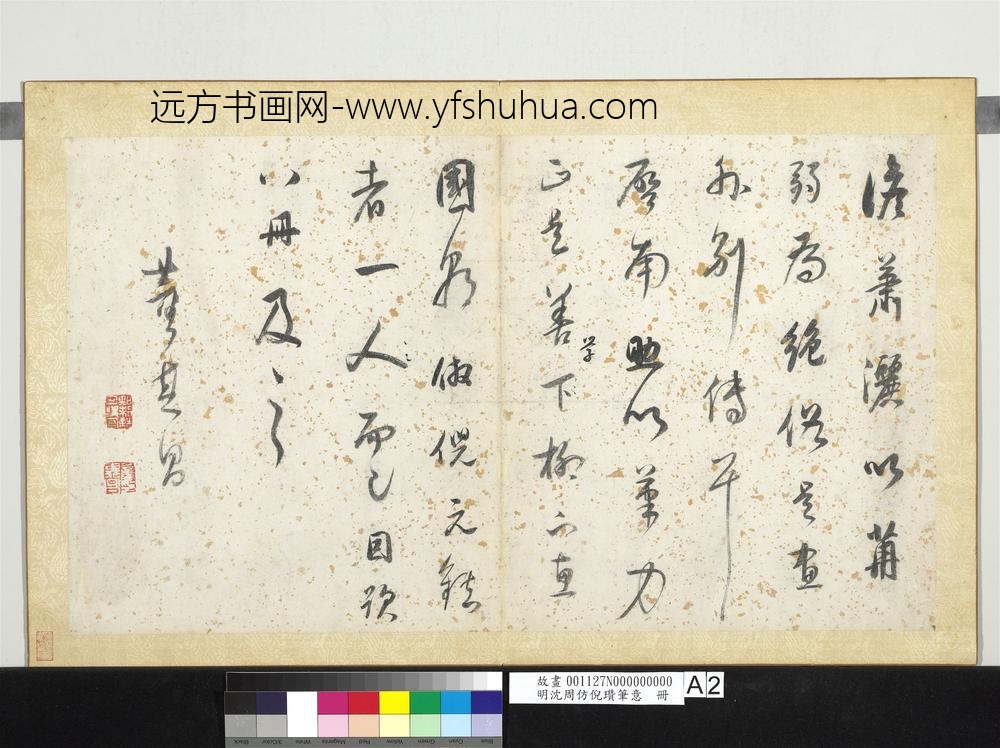 远方书画网-www.yfshuhua.com
澹蕭灑以
弱為絕俗是畫
外別傳耳
啓南助以筆力
正是善學下柳不直
國朝倣倪元鎮
者一人而已因題
此冊及之
董其昌
故畫 001127N000000000
明沈周仿倪瓚筆意 冊
A2
Black
3/Color
White
Magenta
Red
Yellow
Green
Cyan
Blue